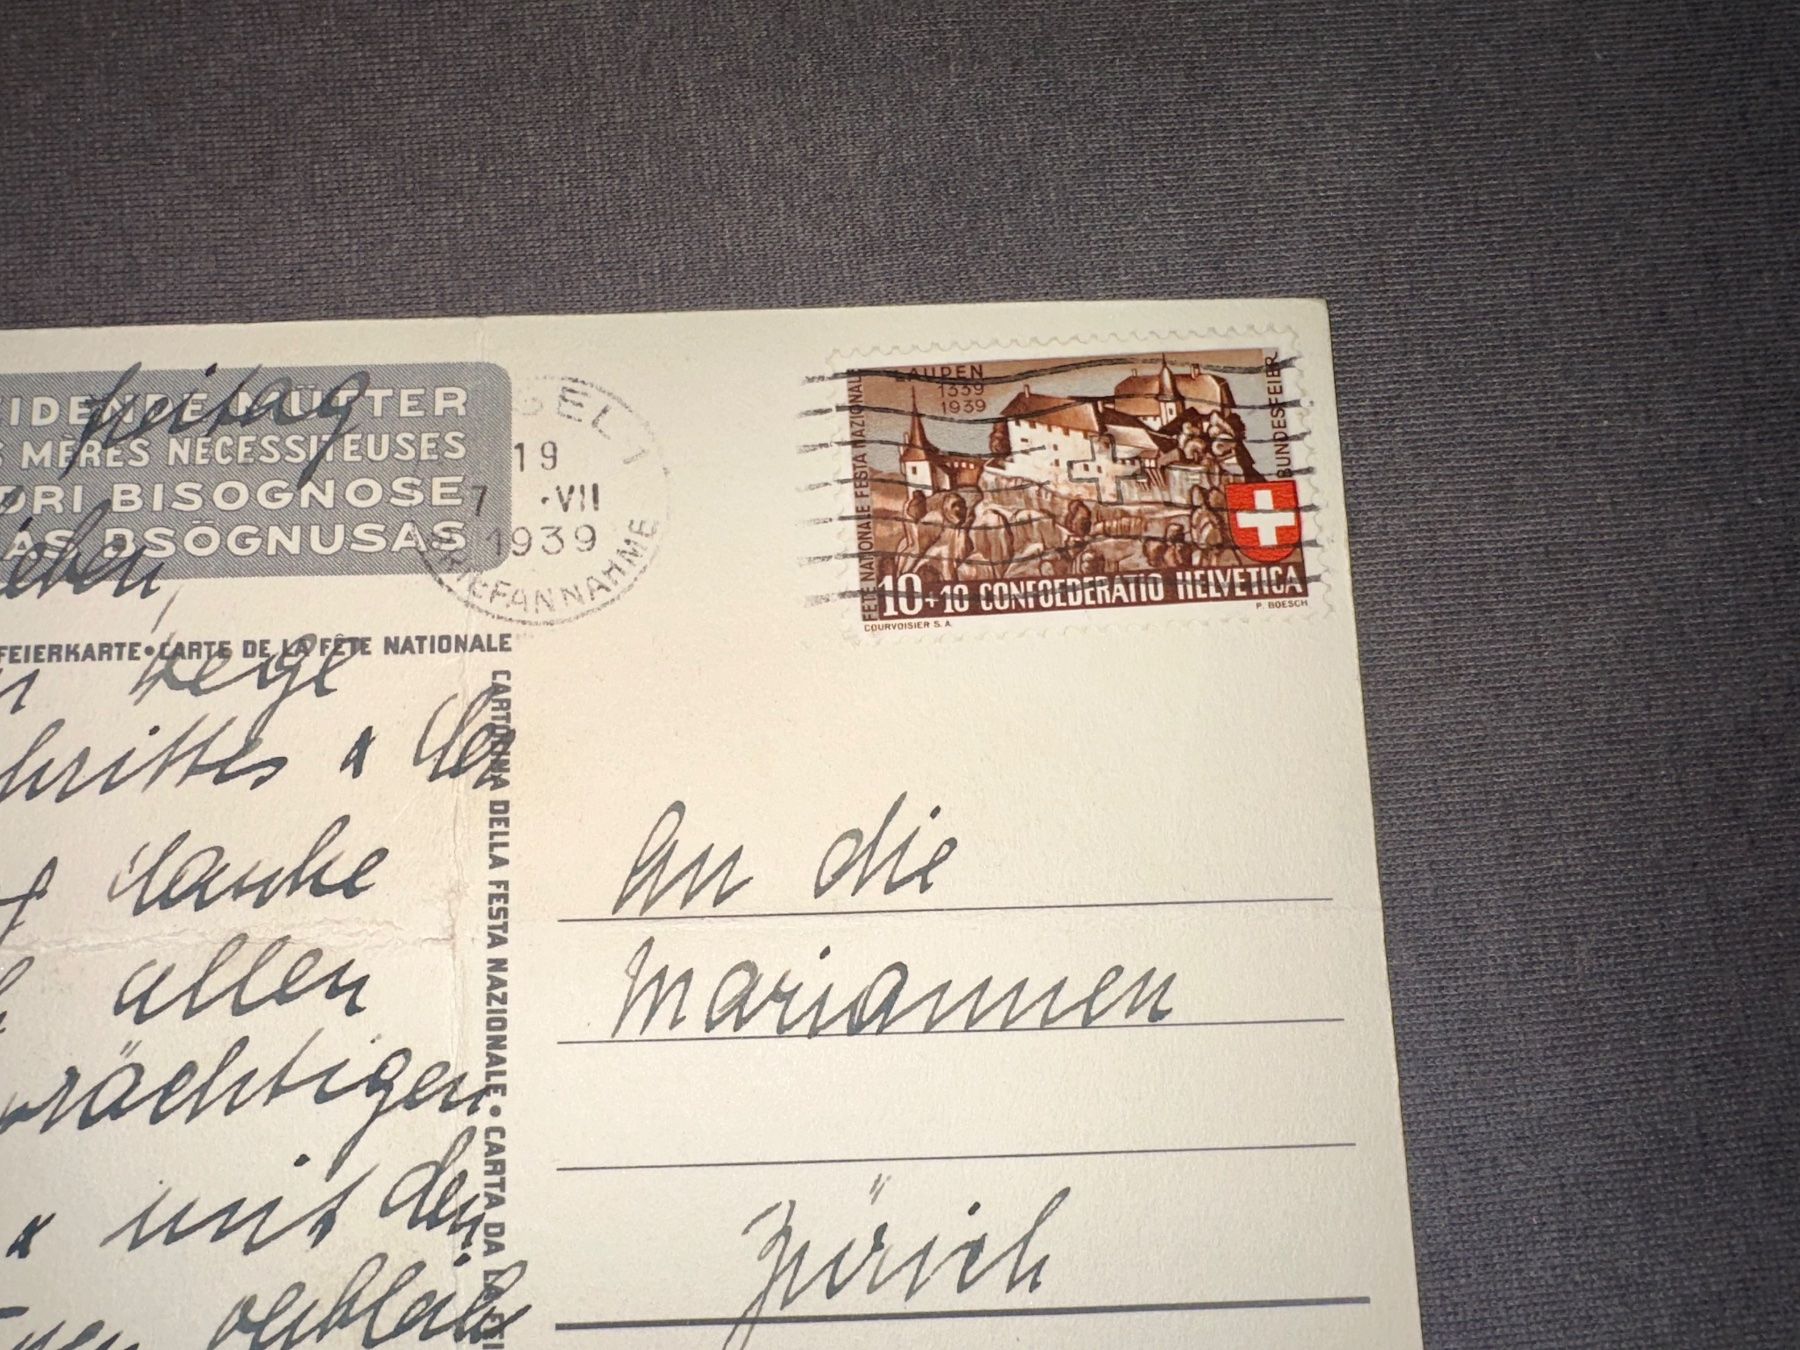 IDENDE MÜTTER
S MÈRES NÉCESSITEUSES
DRI BISOGNOSE
AS BSÖGNUSAS
SEL 1
19
7 ·VII
1939
BRIEFANNAHME
FEIERKARTE•CARTE DE LA FÊTE NATIONALE
CARTOLINA DELLA FESTA NAZIONALE • CARTA DA LA FEI
LAUPEN
1339
1939
FÊTE NATIONALE FESTA NAZIONALE
BUNDESFEIER
10+10 CONFOEDERATIO HELVETICA
COURVOISIER S.A.
P. BOESCH
Freitag
ieben,
hrittes
danke
allen
prächtigen
mit den
An die
Mariannen
Zürich